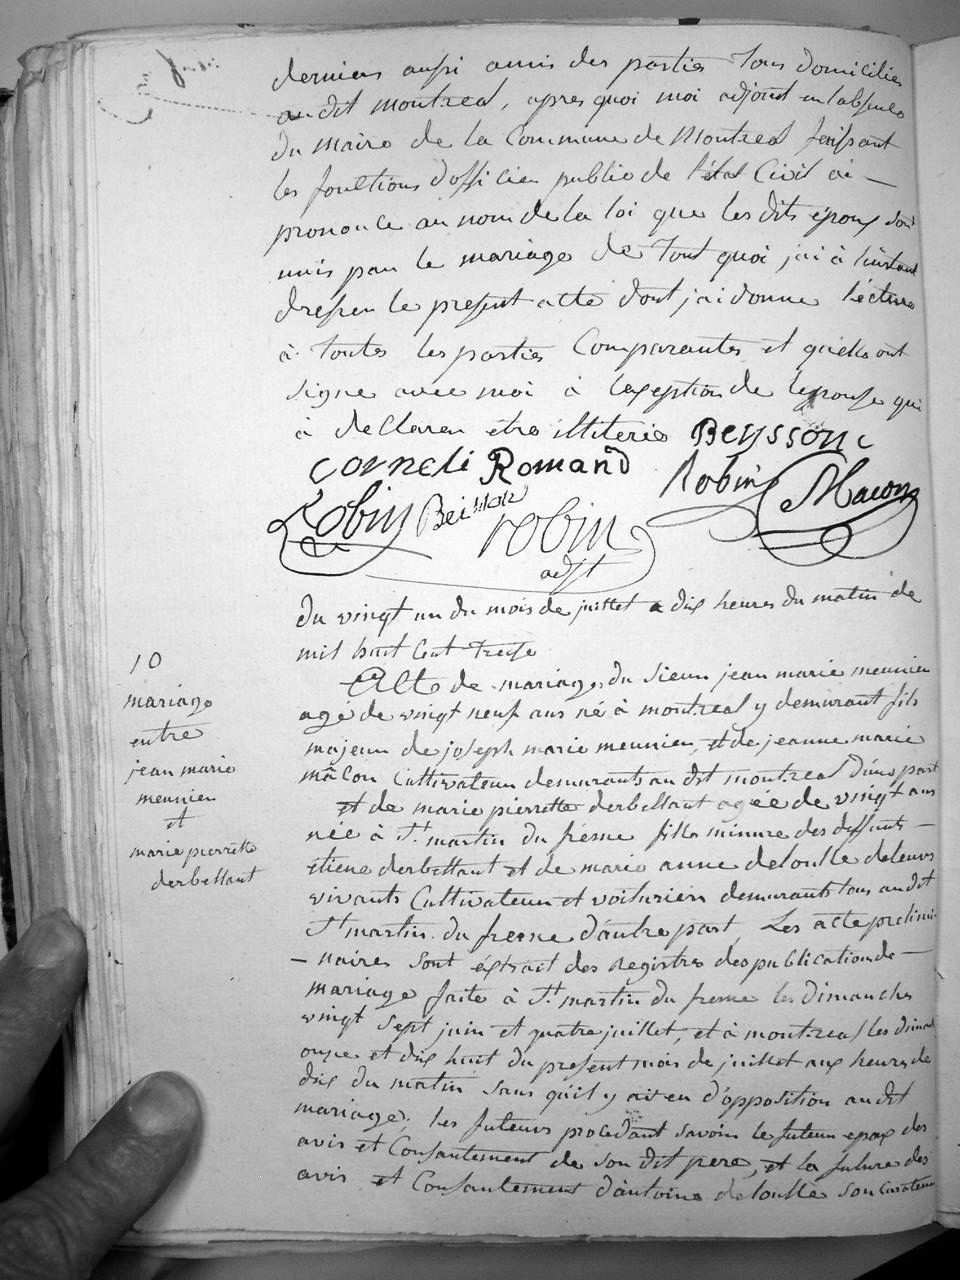 derniers aussi amis des parties tous domicilies
au dit montreal, apres quoi moi adjoint en labsence
du maire de la Commune de Montreal faissant
les fonctions d'officier public de l'état Civil ai —
prononce au nom de la loi que les dits époux sont
unis par le mariage de tout quoi jai à linstant
dresser le present acte dont jai donne lecture
à toutes les parties Comparantes et quelles ont
signe avec moi à lexseption de lepouse qui
à declarer etre illiterie Beyssonc
corneli Romand Robin Macon
Robin Beisson robin
adjt
du vingt un du mois de juillet a dix heures du matin de
mil huit Cent treize
10
mariage
entre
jean marie
meunier
et
marie pierrette
derbellant
Acte de mariage du sieur jean marie meunier
agé de vingt neuf ans né à montreal y demeurant fils
majeur de joseph marie meunier, et de jeanne marie
mâcon Cultivateur demeurants au dit montreal d'une part
et de marie pierrette derbellant agée de vingt ans
née à St martin du frésne fille mineure des deffunts —
etiene derbellant et de marie anne deloulle de leurs
vivants Cultivateur et voiturier demeurants tous au dit
St martin du fresne d'autre part Les acte prelimi
— naires sont éxtrait des Registres des publication de —
mariage faite à St martin du fresne les dimanches
vingt sept juin et quatre juillet, et à montreal les diman
onze et dix huit du present mois de juillet aux heures de
dix du matin sans quil y ait eu d'opposition au dit
mariage, les futeurs procedant savoir le futeur epoux des
avis et Consantement de son dit pere, et la future des
avis et Consantement d'antoine deloulle son curateur